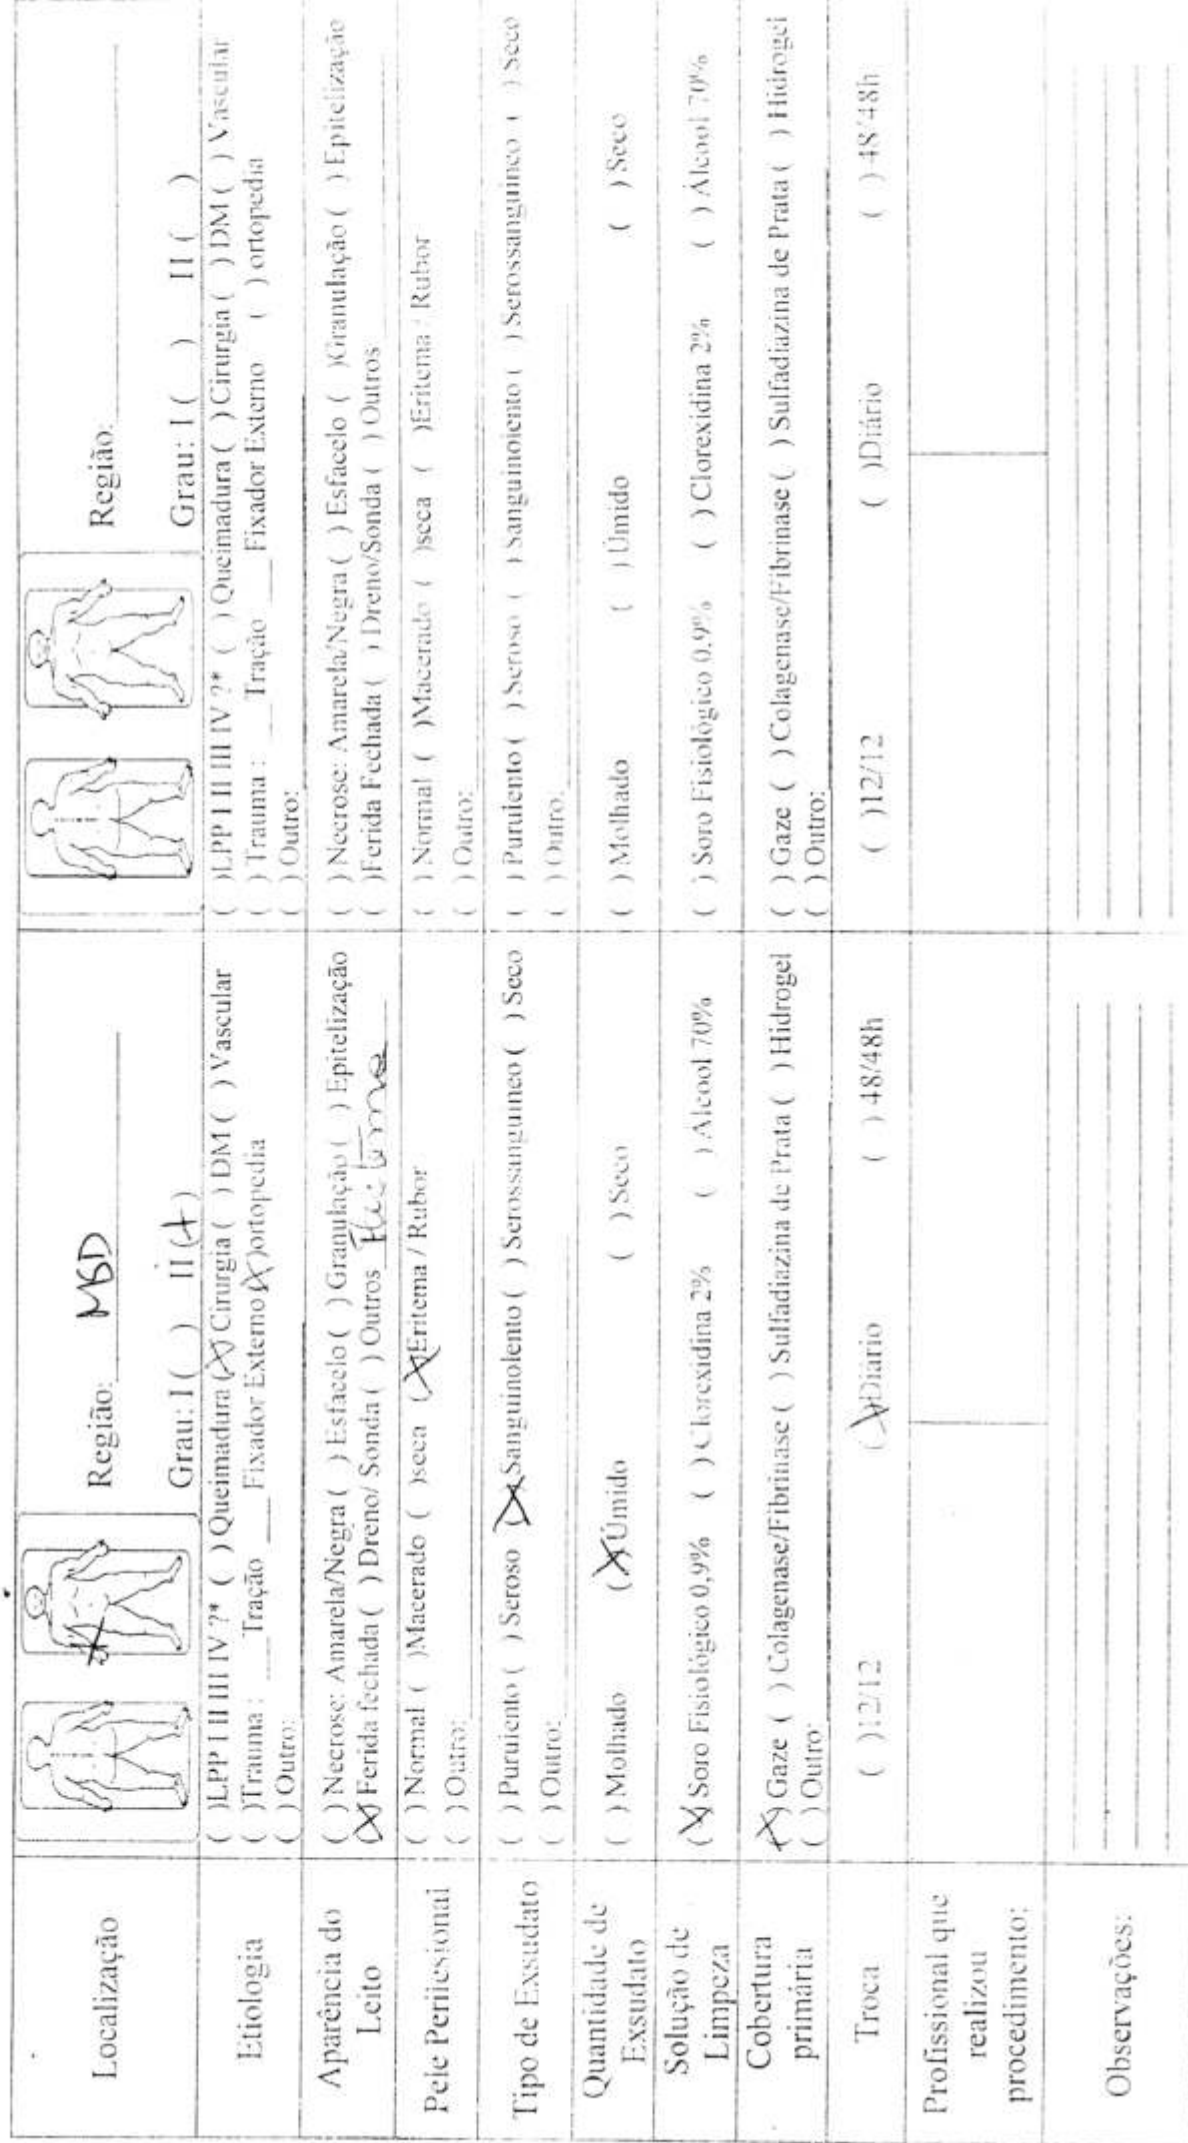 Localização
Região: MSD
Grau: I ( ) II (X)
Região:
Grau: I ( ) II ( )
Etiologia
( )LPP I II III IV ?* ( ) Queimadura (X) Cirurgia ( ) DM ( ) Vascular
( )Trauma : ___ Tração ___ Fixador Externo (X)ortopedia
( ) Outro:
( )LPP I II III IV ?* ( ) Queimadura ( ) Cirurgia ( ) DM ( ) Vascular
( ) Trauma : ___ Tração ___ Fixador Externo ( ) ortopedia
( ) Outro:
Aparência do
Leito
( ) Necrose: Amarela/Negra ( ) Esfacelo ( ) Granulação ( ) Epitelização
(X) Ferida fechada ( ) Dreno/ Sonda ( ) Outros
( ) Necrose: Amarela/Negra ( ) Esfacelo ( )Granulação ( ) Epitelização
( )Ferida Fechada ( ) Dreno/Sonda ( ) Outros
Pele Perilesional
( ) Normal ( )Macerado ( )seca (X)Eritema / Rubor
( ) Outro:
( ) Normal ( )Macerado ( )seca ( )Eritema / Rubor
( ) Outro:
Tipo de Exsudato
( ) Purulento ( ) Seroso (X)Sanguinolento ( ) Serossanguineo ( ) Seco
( ) Outro:
( ) Purulento ( ) Seroso ( ) Sanguinolento ( ) Serossanguineo ( ) Seco
( ) Outro:
Quantidade de
Exsudato
( ) Molhado (X) Úmido ( ) Seco
( ) Molhado ( ) Úmido ( ) Seco
Solução de
Limpeza
(X) Soro Fisiológico 0,9% ( ) Clorexidina 2% ( ) Alcool 70%
( ) Soro Fisiológico 0,9% ( ) Clorexidina 2% ( ) Álcool 70%
Cobertura
primária
(X) Gaze ( ) Colagenase/Fibrinase ( ) Sulfadiazina de Prata ( ) Hidrogel
( ) Outro:
( ) Gaze ( ) Colagenase/Fibrinase ( ) Sulfadiazina de Prata ( ) Hidrogel
( ) Outro:
Troca
( )12/12 (X)Diário ( ) 48/48h
( )12/12 ( )Diário ( ) 48/48h
Profissional que
realizou
procedimento:
Observações: